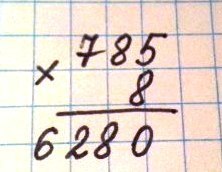 785
×
8
6280